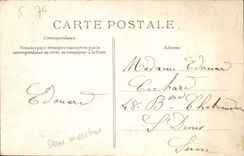 5 7c
CARTE POSTALE
Correspondance
Tous les pays étrangers n'acceptent pas la
correspondance au recto, se renseigner à la Poste
Adresse
Madame Edouard
Cachard
48 Bd Chateaudun
St Denis
Seine
Edouard
Seine maritime